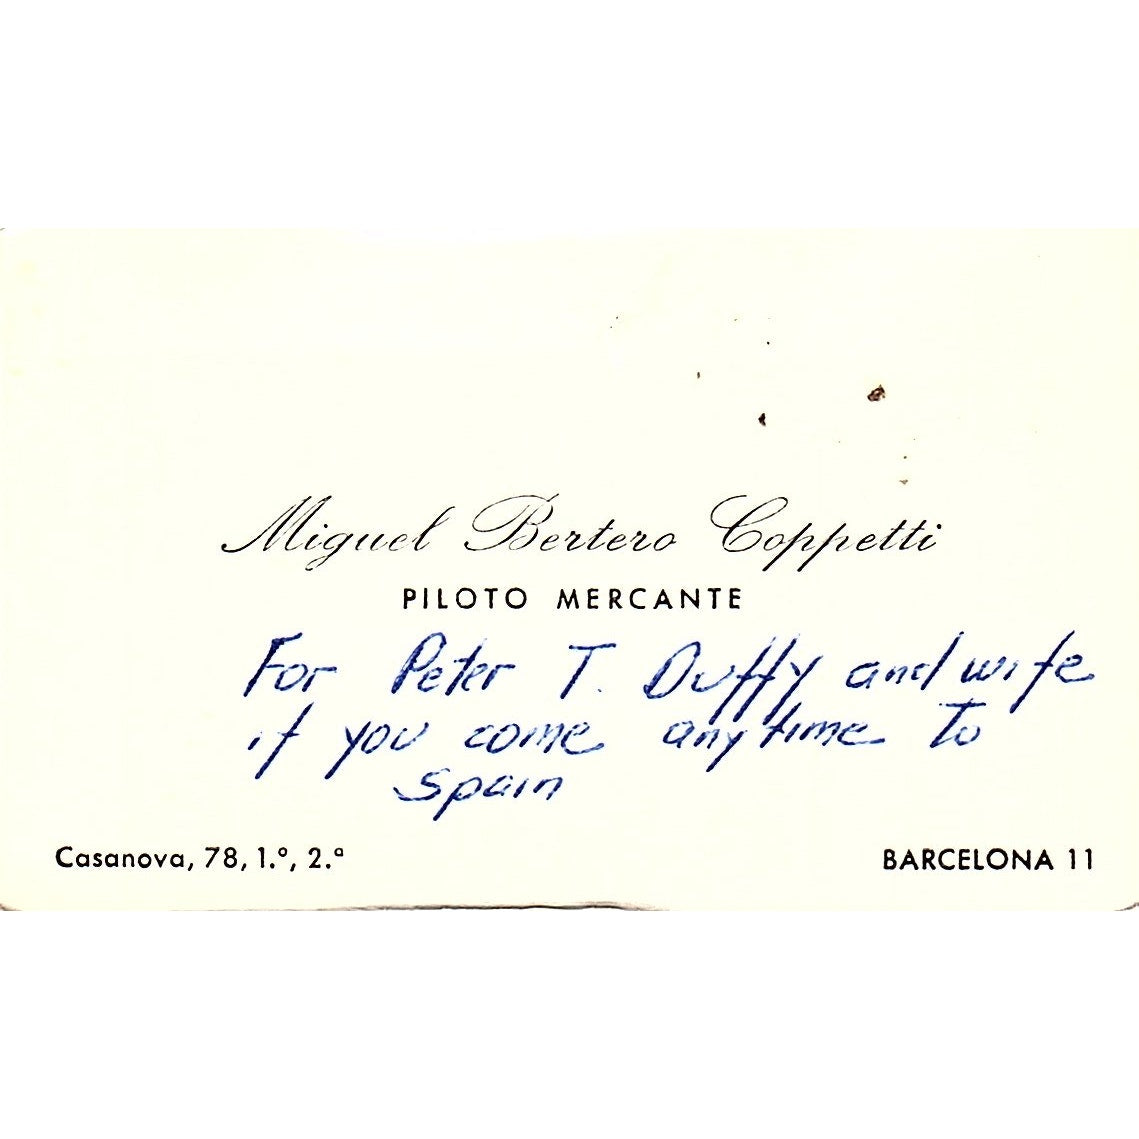 Miguel Bertero Coppetti
PILOTO MERCANTE
For Peter T. Duffy and wife
if you come anytime To
Spain
Casanova, 78, 1.º, 2.ª
BARCELONA 11